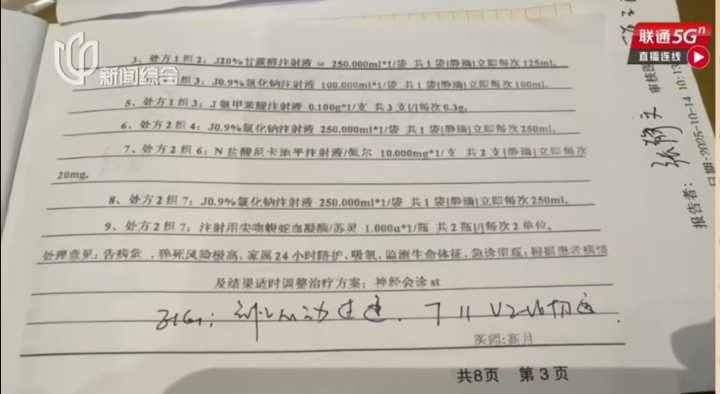 新闻综合
联通5Gn
直播连线
3、处方1组2：J20%甘露醇注射液 ∞ 250.000ml*1/袋 共1袋|静滴|立即每次125ml.
处方1组3：J0.9%氯化钠注射液 100.000ml*1/袋 共1袋|静滴|立即每次100ml.
5、处方1组3：J氨甲苯酸注射液 0.100g*1/支 共3支|/|每次0.3g.
6、处方2组4：J0.9%氯化钠注射液 250.000ml*1/袋 共1袋|静滴|立即每次250ml.
7、处方2组6：N盐酸尼卡地平注射液/佩尔 10.000mg*1/支 共2支|静滴|立即每次
20mg.
8、处方2组7：J0.9%氯化钠注射液 250.000ml*1/袋 共1袋|静滴|立即每次250ml.
9、处方2组7：注射用尖吻蝮蛇血凝酶/苏灵 1.000u*1/瓶 共2瓶|/|每次2单位.
处理意见：告病危，猝死风险极高，家属24小时陪护，吸氧，监测生命体征，急诊留观；根据患者病情
及结果适时调整治疗方案；神经会诊st
医师：高月
共8页 第3页
报告者：
审核医
日期：2025-10-14 10:1